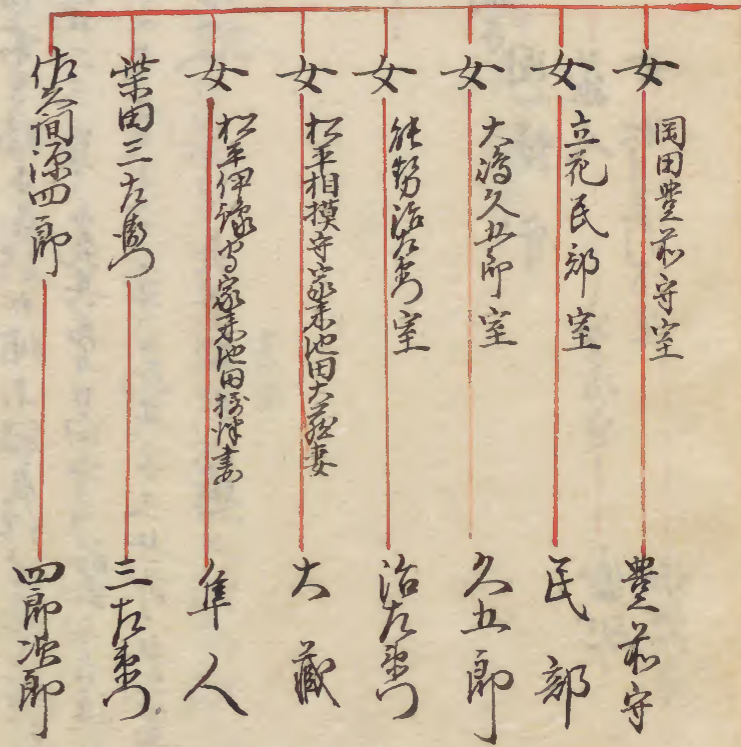 女
岡田豊前守室
豊前守
女
立花民部室
民部
女
大嶋久五郎室
久五郎
女
能勢治左衛門室
治左衛門
女
松平相摸守家来池田大蔵妻
大藏
女
松平伊豫守家来池田隼人妻
隼人
柴田三左衛門
三左衛門
佐久間源四郎
四郎次郎